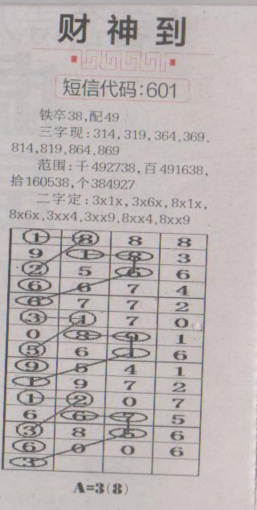 财神到
短信代码:601
铁卒38,配49
三字现:314,319,364,369,
814,819,864,869
范围:千492738,百491638,
拾160538,个384927
二字定:3x1x,3x6x,8x1x,
8x6x,3xx4,3xx9,8xx4,8xx9
1 8 8 8
9 1 8 3
2 5 6 6
6 6 7 4
6 7 7 2
3 4 7 0
0 8 9 1
5 6 1 6
9 5 4 1
1 9 7 2
1 2 0 7
6 6 7 5
3 8 6 6
6 0 0 6
3
A=3(8)